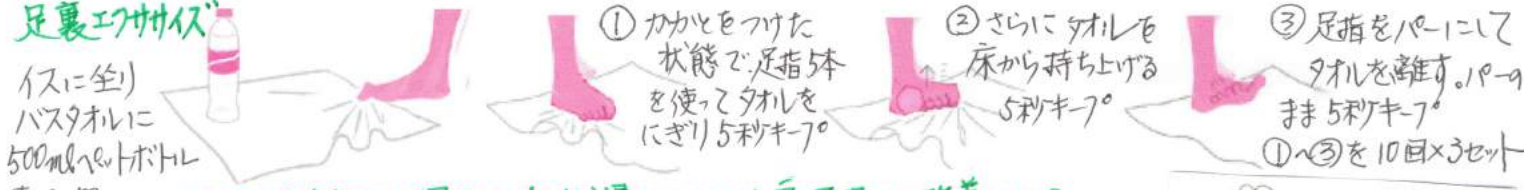 足裏エクササイズ
イスに坐り
バスタオルに
500mlペットボトル
① かかとをつけた
状態で、足指5本
を使ってタオルを
にぎり5秒キープ
② さらにタオルを
床から持ち上げる
5秒キープ
③ 足指をパーにして
タオルを離す。パーの
まま5秒キープ
①〜③を10回×3セット